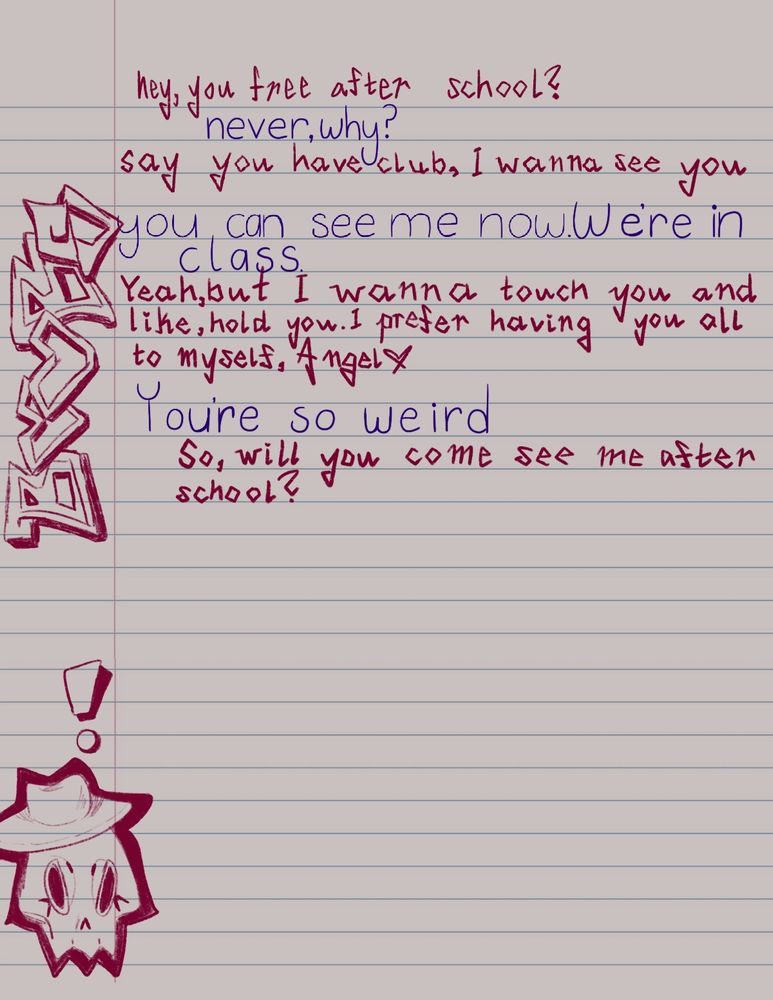 hey, you free after school?
never, why?
say you have club, I wanna see you
you can see me now. We're in
class.
Yeah, but I wanna touch you and
like, hold you. I prefer having you all
to myself, Angel♡
You're so weird
So, will you come see me after
school?
!